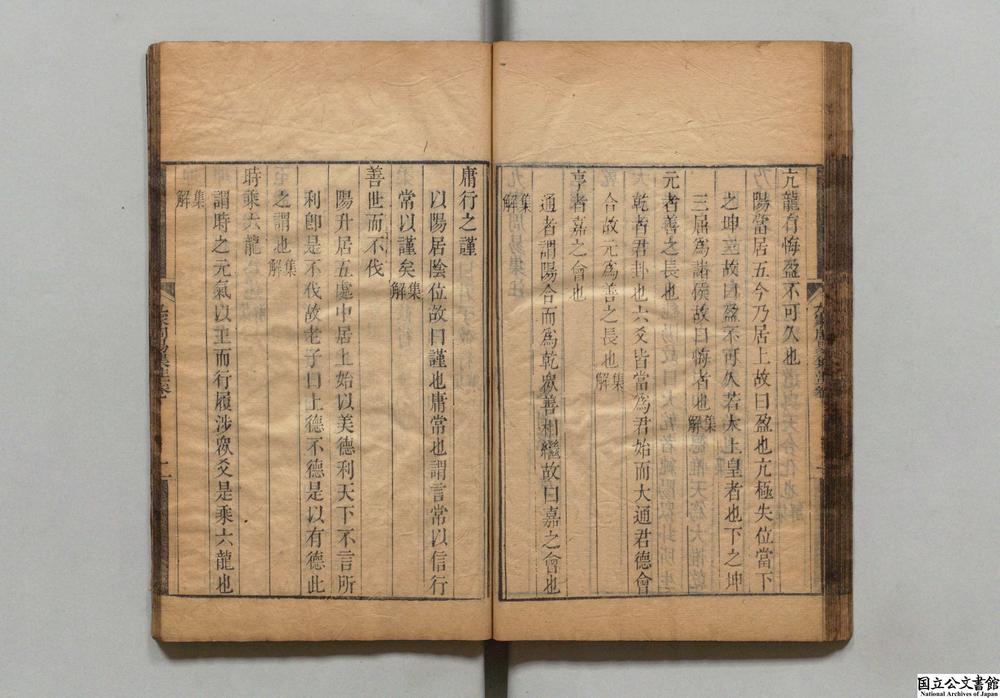 亢龍有悔盈不可久也
陽當居五今乃居上故曰盈也亢極失位當下
之坤三故曰盈不可久若太上皇者也下之坤
三屈為諸侯故曰悔者也集解
元者善之長也
乾者君卦也六爻皆當為君始而大通君德會
合故元為善之長也集解
亨者嘉之會也
通者謂陽合而為乾衆善相繼故曰嘉之會也
集解
庸行之謹
以陽居陰位故曰謹也庸常也謂言常以信行
常以謹矣集解
善世而不伐
陽升居五處中居上始以美德利天下不言所
利即是不伐故老子曰上德不德是以有德此
之謂也集解
時乘六龍
謂時之元氣以王而行履涉衆爻是乘六龍也
集解
国立公文書館
National Archives of Japan